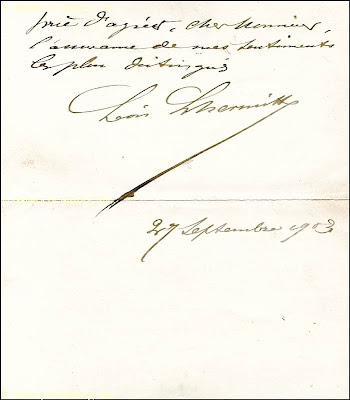 prie d'agréer, cher Monsieur,
l'assurance de mes sentiments
les plus distingués
Léon Lhermitte
27 Septembre 1903